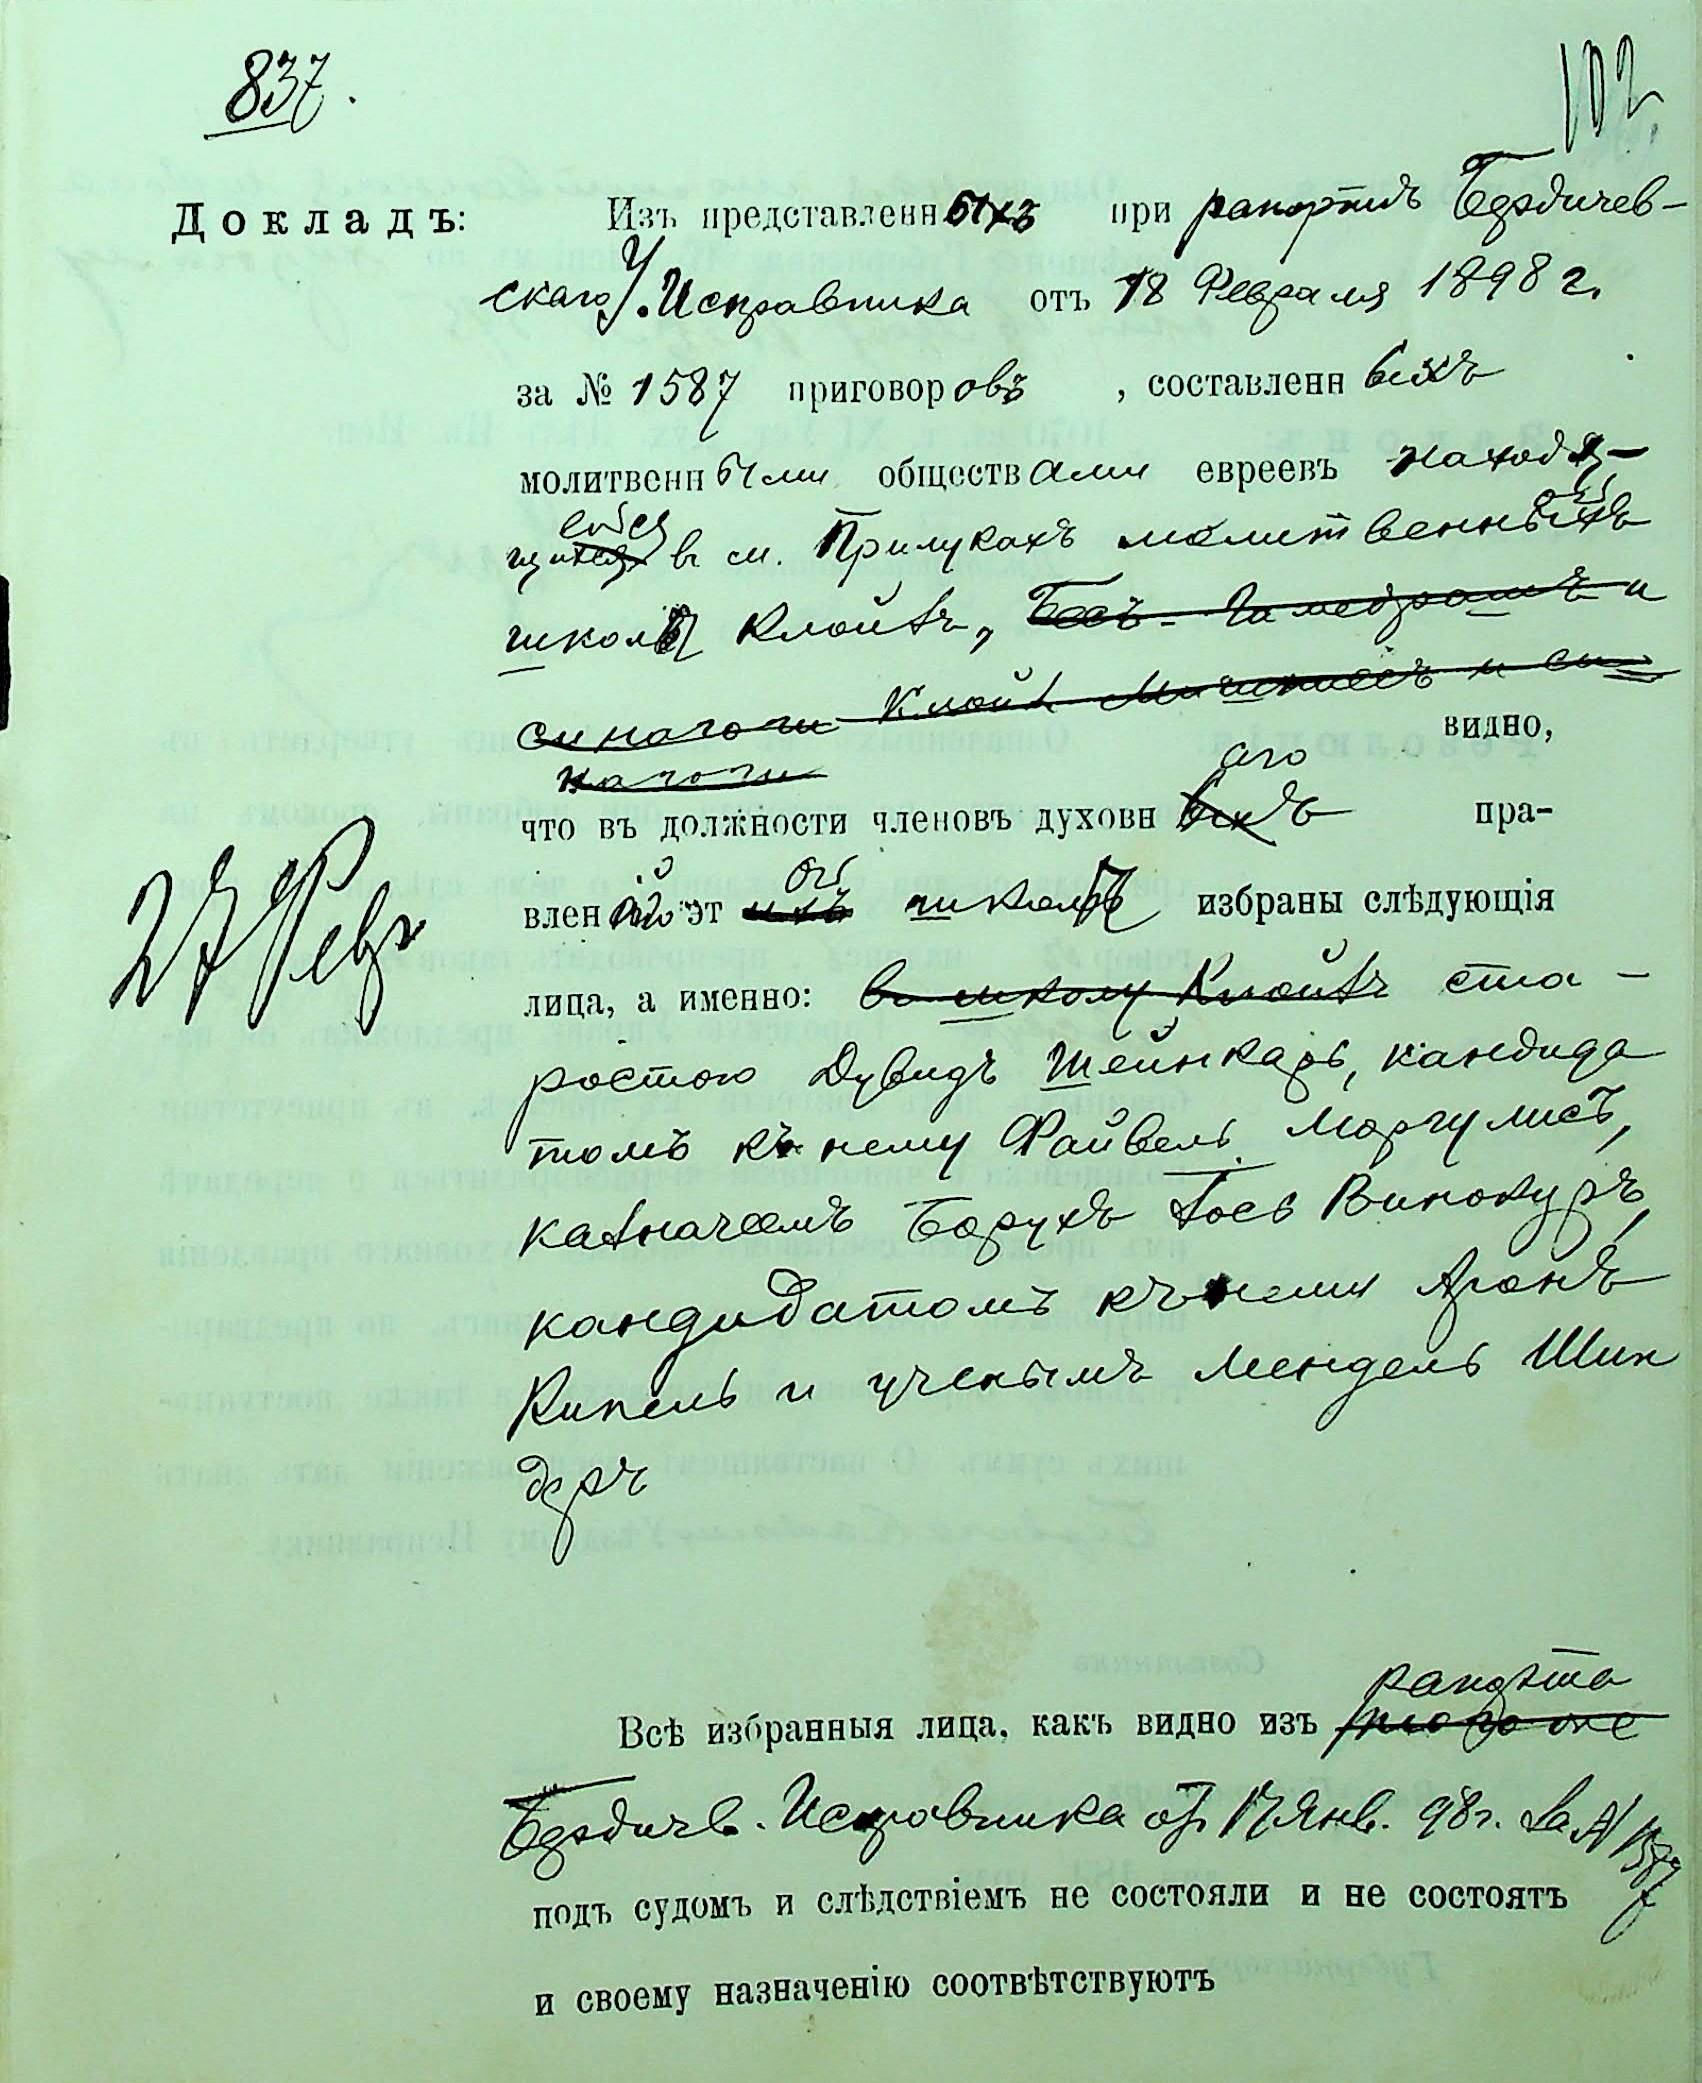 837.
102.
Докладъ: Изъ представленныхъ при рапортѣ Бердичев-
скаго У. Исправника отъ 18 Февраля 1898 г.
за № 1587 приговоровъ, составленныхъ
молитвенными обществами евреевъ находя-
ейся
щихся в м. Прилукахъ молитвенныхъ
ой
школы Клойзъ, Бесъ-Гамедрашъ и
синагоги Клойз и си
нагоги видно,
аго
что въ должности членовъ духовныхъ пра-
ой
вленій эт ихъ школы избраны слѣдующія
27 Февр
лица, а именно: въ школу Клойзъ ста-
ростою Дувидъ Шейнкарь, кандида
томъ къ нему Файвель Моргулисъ,
казначеемъ Борухъ Іось Винокуръ,
кандидатомъ къ нему Аронъ
Кипель и ученымъ Мендель Шин
деръ
рапорта
Всѣ избранныя лица, какъ видно изъ того же
Бердичв. Исправника от 17 Янв. 98 г. за №
подъ судомъ и слѣдствіемъ не состояли и не состоятъ
и своему назначенію соотвѣтствуютъ